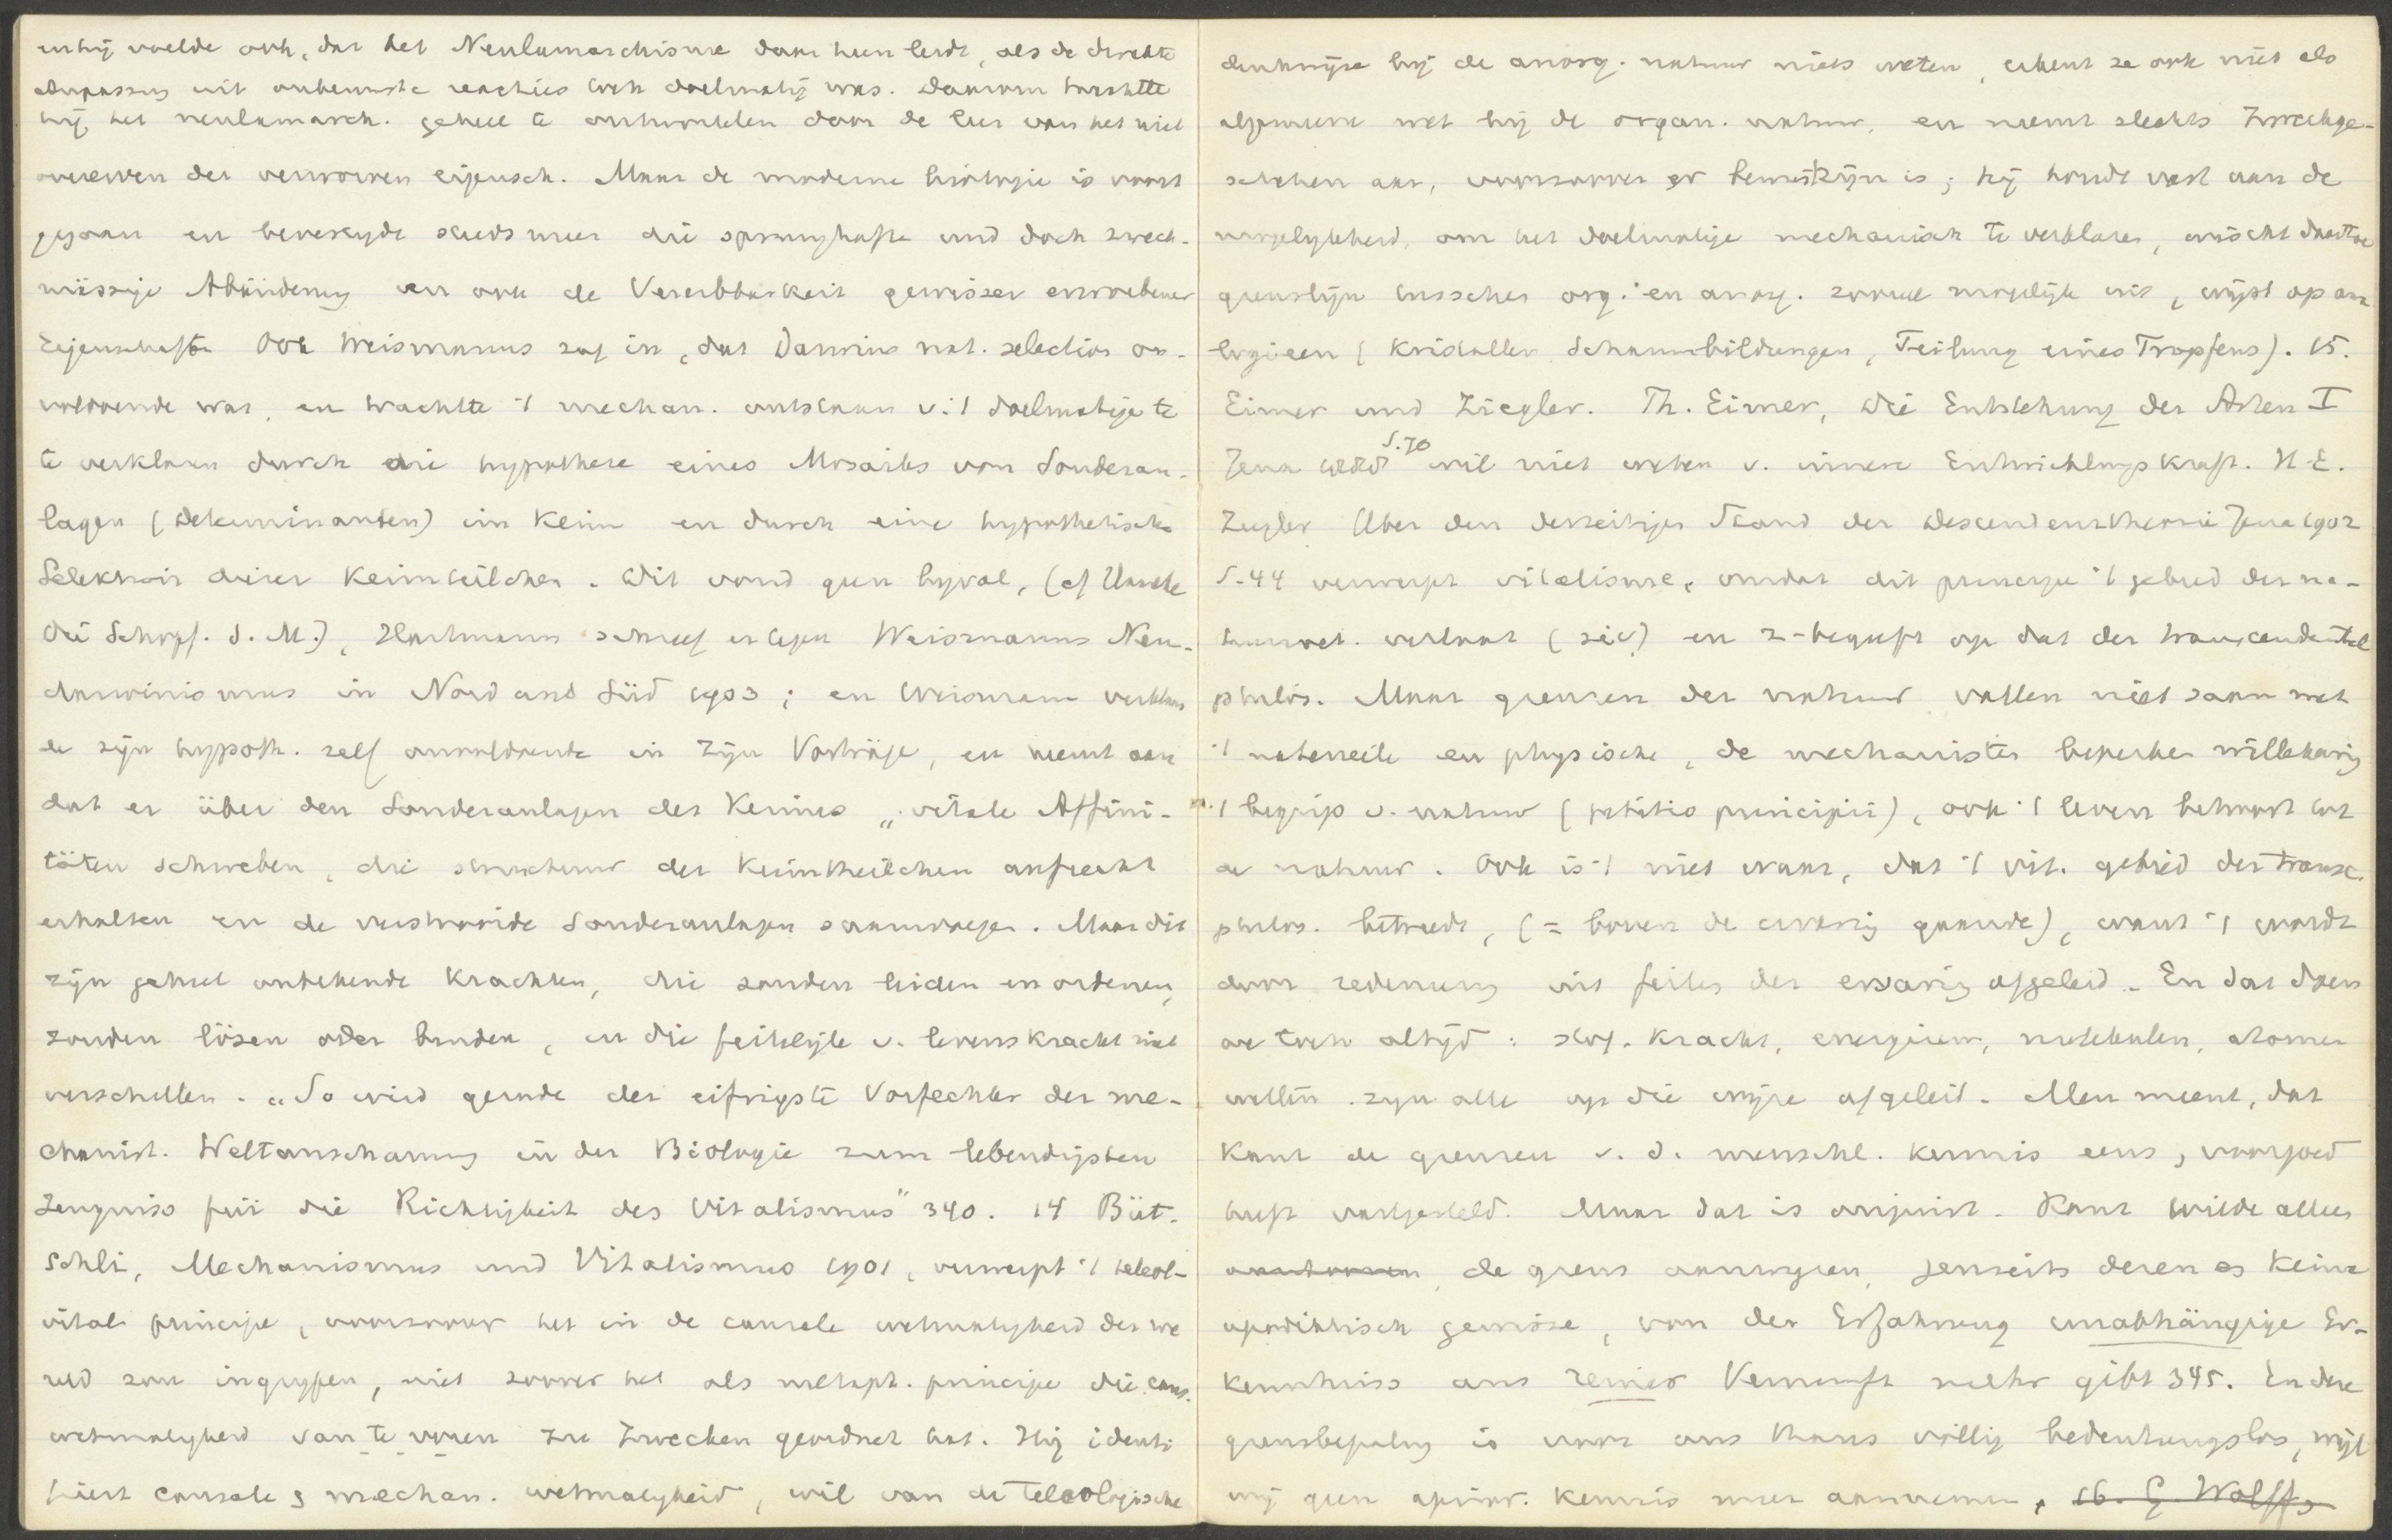 en hij voelde ook, dat het Neulamarckisme daar heen leidt, als de direkte
Anpassung uit onbewuste reacties toch doelmatig was. Daarom trachtte
hij het neulamarck. geheel te ontwortelen door de leer van het niet
overerven der verworven eigensch. Maar de moderne biologie is voort
gegaan en bevestigde steeds meer die sprunghafte und doch zweck-
mässige Abänderung en ook de Vererbbarkeit gewisser erworbener
Eigenschaften Ook Weismanns zag in, dat Darwins nat. selection on-
voldoende was, en trachtte 't mechan. ontstaan v. 't doelmatige te
te verklaren durch die hypothese eines Mosaiks von Sonderan-
lagen (Determinanten) im Keim en durch eine hypothetische
Selektion dieser Keimteilchen. Dit vond geen bijval, (cf
die Schöpf. S. M.), Hartmann schreef er tegen Weismanns Neu-
darwinismus in Nord und Süd 1903; en Weismann verklaar
de zijn hypoth. zelf onvoldoende in zijn Vorträge, en neemt aan
dat er über den Sonderanlagen des Keimes „vitale Affini-
täten schweben, die structuur der Keimtheilchen aufrecht
erhalten en de verstrooide Sonderanlagen saamvoegen. Maar dit
zijn geheel onbekende krachten, die zouden leiden en ordenen,
zouden lösen oder binden, en die feitelijk v. levenskracht niet
verschillen. „So wird gerade der eifrigste Vorfechter der me-
chanist. Weltanschauung in der Biologie zum lebendigsten
Zeugniss für die Richtigkeit des Vitalismus" 340. 14 Büt-
schli, Mechanismus und Vitalismus 1901, verwerpt 't teleol-
vitale principe, voorzoover het in de causale wetmatigheid der we
reld zou ingrijpen, niet zoover het als metaph. principe die caus.
wetmatigheid van te voren zu Zwecken geordnet hat. Hij identi
fiert causale & mechan. wetmatigheid, wil van de teleologische
denkwijze bij de anorg. natuur niets weten, erkent ze ook niet als
algemeene wet bij de organ. natuur, en neemt slechts Zweckge-
schehen aan, voorzoover er bewustzijn is; hij houdt vast aan de
mogelijkheid, om het doelmatige mechanisch te verklaren, wischt daartoe
grenslijn tusschen org. en anorg. zooveel mogelijk uit, wijst op ana
logieen (Kristallen Schaumbildungen, Teilung eines Tropfens). 15.
Eimer und Ziegler. Th. Eimer, Die Entstehung der Arten I
Jena 1888 S. 70 wil niet weten v. innere Entwicklungskraft. H. E.
Ziegler Über den derzeitigen Stand der Descendenztheorie Jena 1902
S. 44 verwerpt vitalisme, omdat dit principe 't gebied der na-
tuurwet. verlaat (sic) en z. begeeft op dat der transcendental
philos. Maar grenzen der natuur vallen niet saam met
't materieele en physische, de mechanisten beperken willekeurig
't begrip v. natuur (petitio principii), ook 't leven behoort tot
de natuur. Ook is 't niet waar, dat 't vit. gebied der transc.
philos. betreedt, (= boven de ervaring gaande), want 't wordt
door redenering uit feiten der ervaring afgeleid. En dat doen
we toch altijd: stof, kracht, energieen, molekulen, atomen
wetten zijn alle op die wijze afgeleid. Men meent, dat
Kant de grenzen v. d. menschl. kennis eens, voorgoed
heeft vastgesteld. Maar dat is onjuist. Kant wilde alleen
de grens aanwijzen, jenseits deren es keine
apodiktisch gewisse, von der Erfahrung unabhängige Er-
kenntniss aus reiner Vernunft mehr gibt 345. En deze
grensbepaling is voor ons thans völlig bedeutungslos, wijl
wij geen aprior. kennis meer aannemen. 16. G. Wolff,